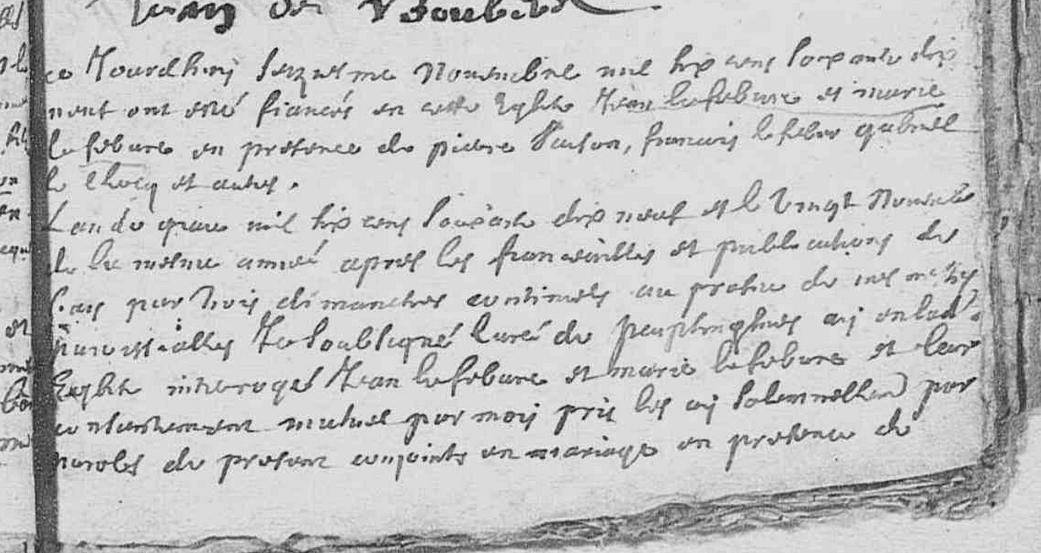 Jean de
ce Jourdhuy seziesme Novembre mil six cens soixante dix
neuf ont esté fiancés en cette Eglise Jean lefebure et marie
lefebure en presence de pierre francois lefebure gabriel
le Clocq et autres.
Lan de grace mil six cens soixante dix neuf et le vingt Novembre
de la mesme année apres les fiancailles et publications des
bans par trois dimanches continuels au prosne de nos messes
paroissialles Je soubsigné Curé de peuplingues ay en lad.
Eglise interrogé Jean lefebure et marie lefebure et leur
consentement mutuel par moy pris les ay solemnellem par
paroles de present conjoints en mariage en presence de